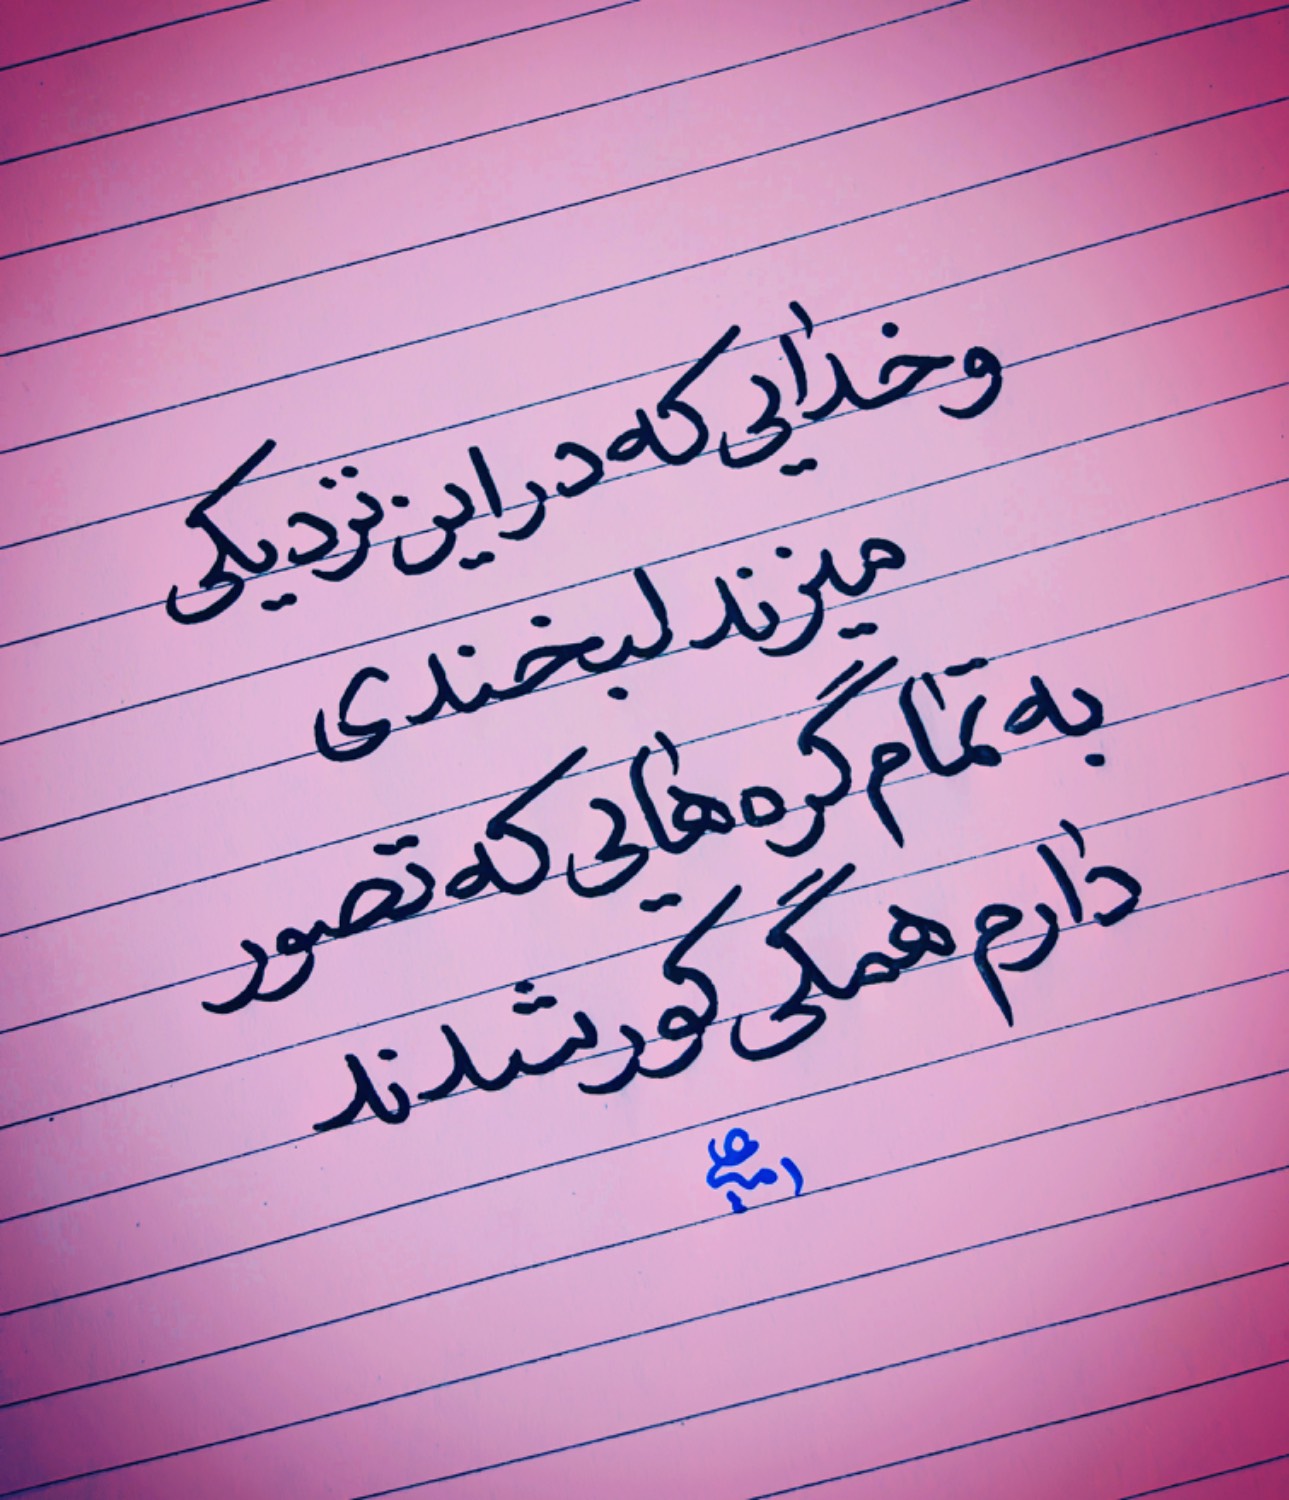 و خدایی که در این نزدیکی
میزند لبخندی
به تمام گره هایی که تصور
دارم همگی کور شدند